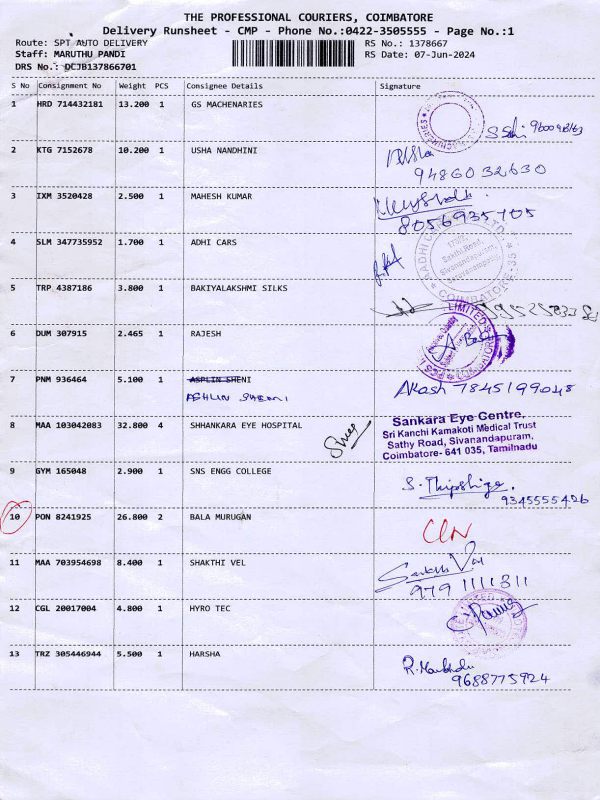 THE PROFESSIONAL COURIERS, COIMBATORE
Delivery Runsheet - CMP - Phone No.:0422-3505555 - Page No.:1
Route: SPT AUTO DELIVERY RS No.: 1378667
Staff: MARUTHU PANDI RS Date: 07-Jun-2024
DRS No.: DCJB137866701
S No Consignment No Weight PCS Consignee Details Signature
1 HRD 714432181 13.200 1 GS MACHENARIES
2 KTG 7152678 10.200 1 USHA NANDHINI
9486032630
3 IXM 3520428 2.500 1 MAHESH KUMAR
8056935705
4 SLM 347735952 1.700 1 ADHI CARS
Sakthi Road,
Sivanandapuram,
COIMBATORE-35
5 TRP 4387186 3.800 1 BAKIYALAKSHMI SILKS
LIMITED
6 DUM 307915 2.465 1 RAJESH
7 PNM 936464 5.100 1 ASPLIN SHENI
ASHLIN SHENI
Akash 7845199048
8 MAA 103042083 32.800 4 SHHANKARA EYE HOSPITAL
Sankara Eye Centre,
Sri Kanchi Kamakoti Medical Trust
Sathy Road, Sivanandapuram,
Coimbatore- 641 035, Tamilnadu
9 GYM 165048 2.900 1 SNS ENGG COLLEGE
9345555426
10 PON 8241925 26.800 2 BALA MURUGAN
11 MAA 703954698 8.400 1 SHAKTHI VEL
9791111311
12 CGL 20017004 4.800 1 HYRO TEC
13 TRZ 305446944 5.500 1 HARSHA
9688775924